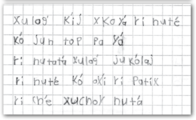 xulaq kij xkoxa ri nuté
kó jun top pa yá
ri nutata xulaq jukólaj
ri nuté kó oki ri patik
ri che xuchoy nutá